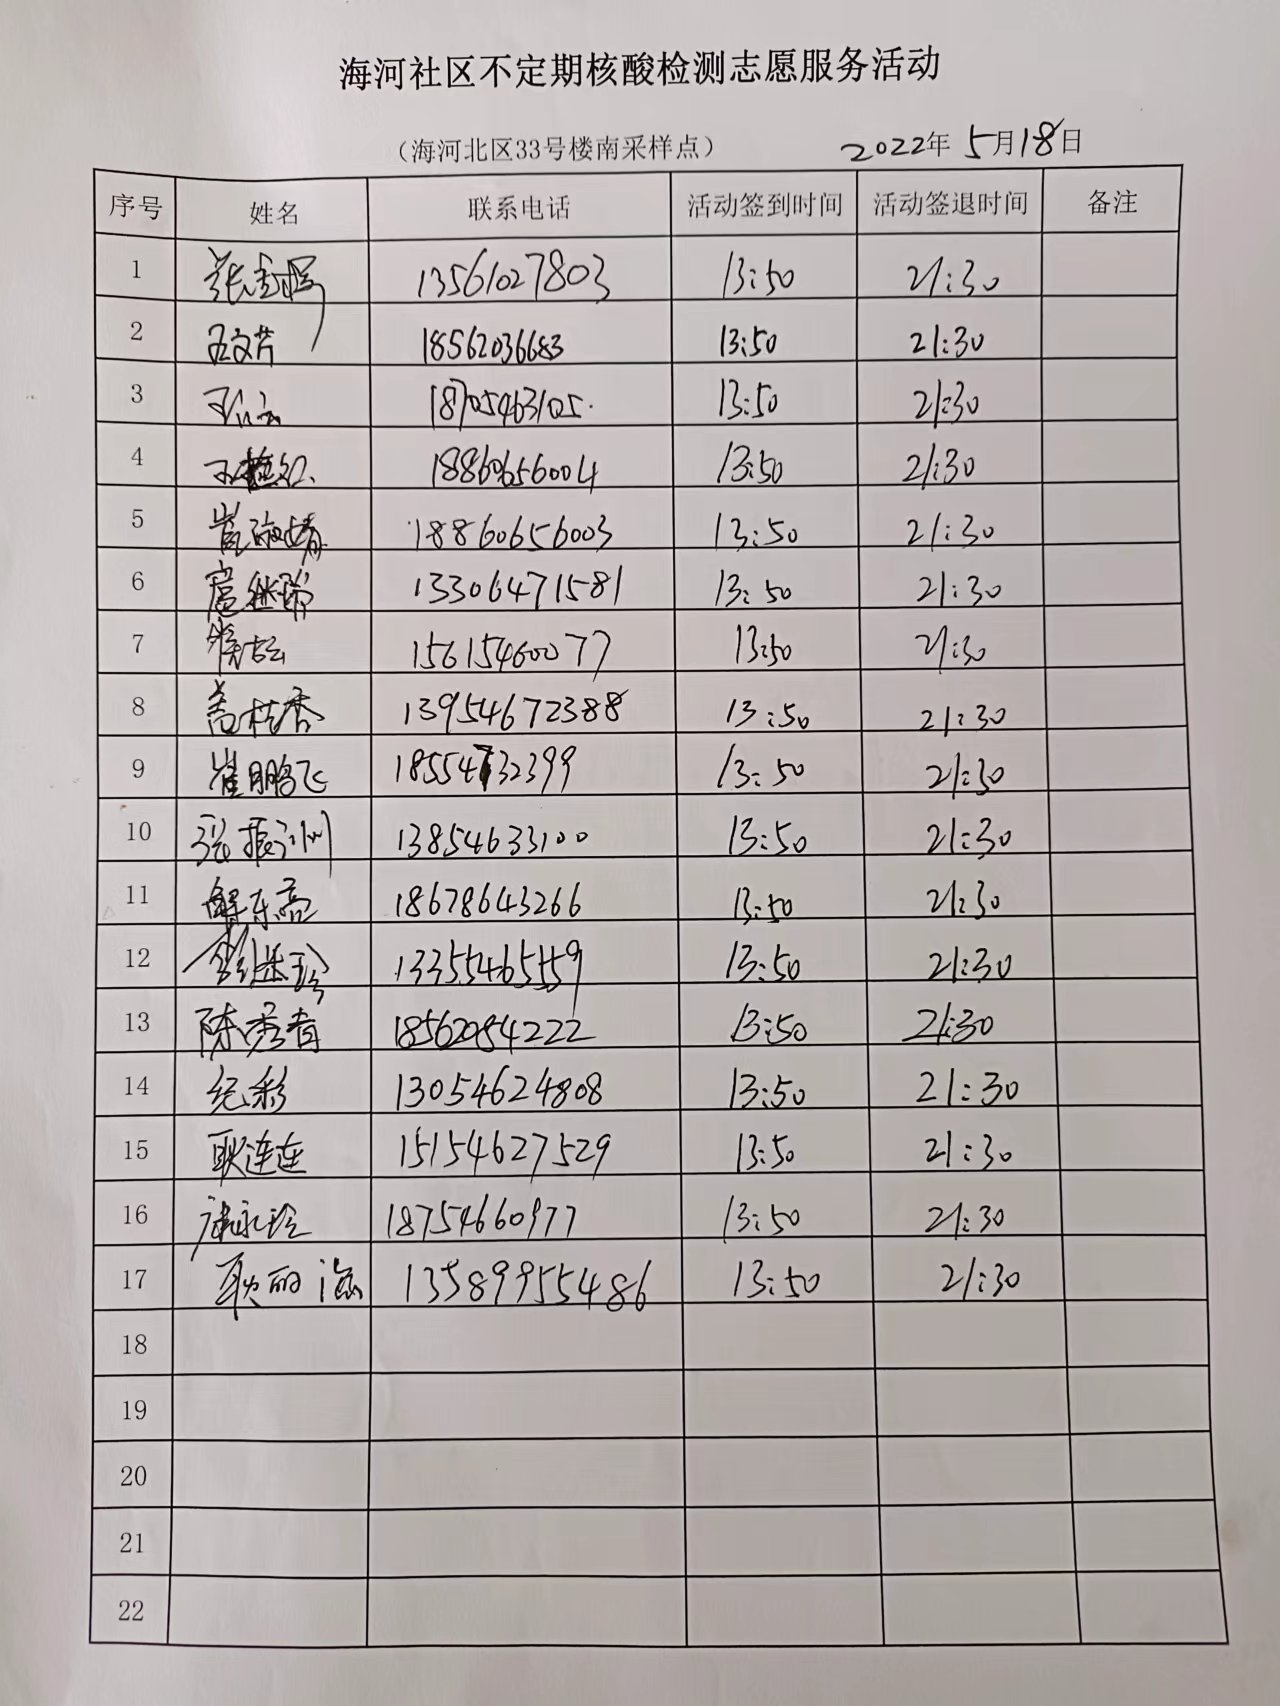 海河社区不定期核酸检测志愿服务活动
（海河北区33号楼南采样点） 2022年 5月18日
序号 姓名 联系电话 活动签到时间 活动签退时间 备注
1 13561027803 13:50 21:30
2 18562036683 13:50 21:30
3 18705463105 13:50 21:30
4 18860656004 13:50 21:30
5 崔淑婧 18860656003 13:50 21:30
6 扈继瑞 13306471581 13:50 21:30
7 15615460077 13:50 21:30
8 盖桂香 13954672388 13:50 21:30
9 崔鹏飞 18554732399 13:50 21:30
10 张振洲 13854633100 13:50 21:30
11 解东亮 18678643266 13:50 21:30
12 13355465559 13:50 21:30
13 陈秀青 18562084222 13:50 21:30
14 纪彩 13054624808 13:50 21:30
15 耿连连 15154627529 13:50 21:30
16 永玲 18754660977 13:50 21:30
17 耿丽 13589955486 13:50 21:30
18
19
20
21
22